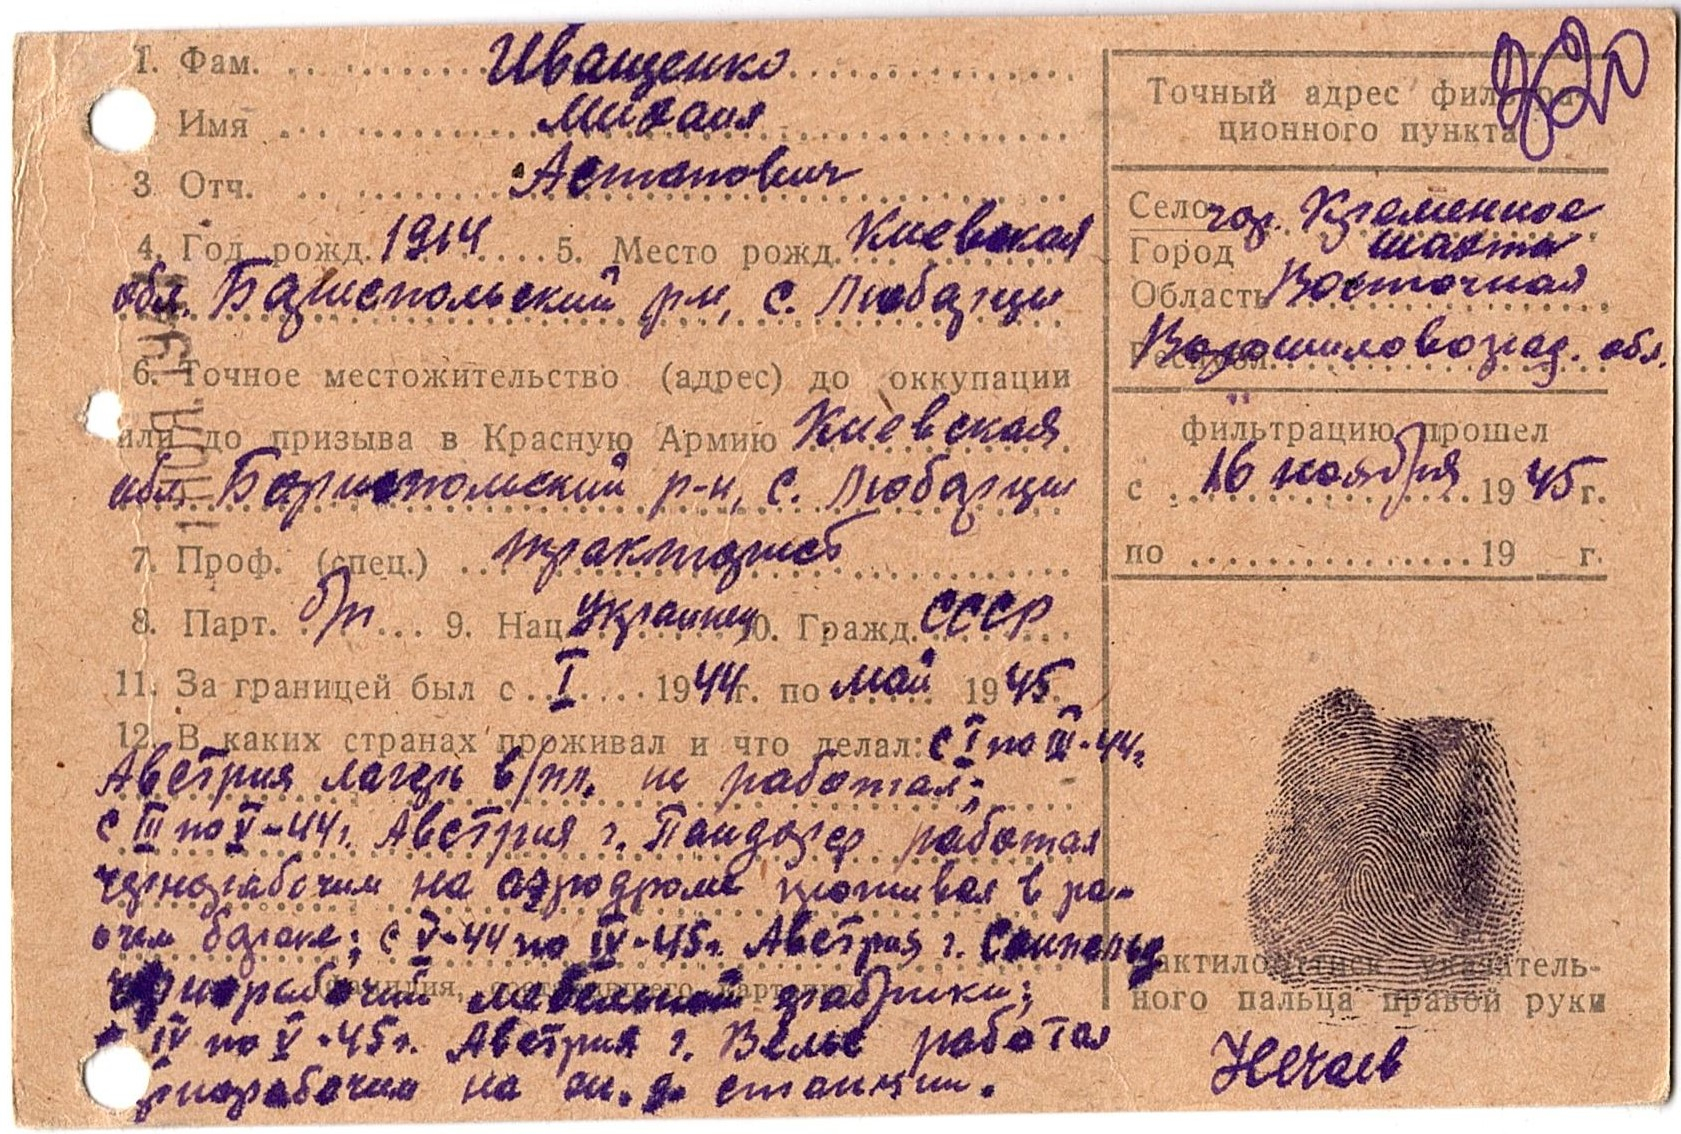 1. Фам. Иващенко
Имя Михаил
3 Отч. Астапович
4. Год рожд. 1914 5. Место рожд. Киевская
обл. Бариспольский р-н, с. Любарцы
6. Точное местожительство (адрес) до оккупации
или до призыва в Красную Армию Киевская
обл. Бариспольский р-н, с. Любарцы
7. Проф. (спец.) тракторист
8. Парт. б/п 9. Нац. украинец 10. Гражд. СССР
11. За границей был с I 1944 г. по май 1945
12. В каких странах проживал и что делал: с I по III-44г.
Австрия лагерь в/пл. не работал;
с III по V-44г. Австрия г. работал
чернорабочим на аэродроме проживал в ра-
очем бараке; с V-44 по IV-45г. Австрия г.
чернорабочий мебельной фабрики;
IV по V-45г. Австрия г. Вельс работал
рнорабочим на ж.д. станции.
820
Точный адрес фильтра-
ционного пункта
Село гор. Кременное
Город шахта
Область Восточная
Республ. Ворошиловоград. обл.
фильтрацию прошел
с 16 ноября 1945 г.
по 19 г.
дактилооттиск указатель-
ного пальца правой руки
Нечаев